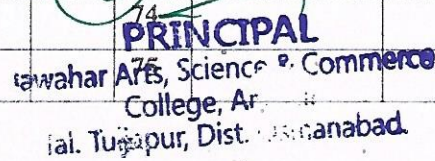 74
PRINCIPAL
75
awahar Arts, Science & Commerce
College, Ar
al. Tuljapur, Dist. anabad.